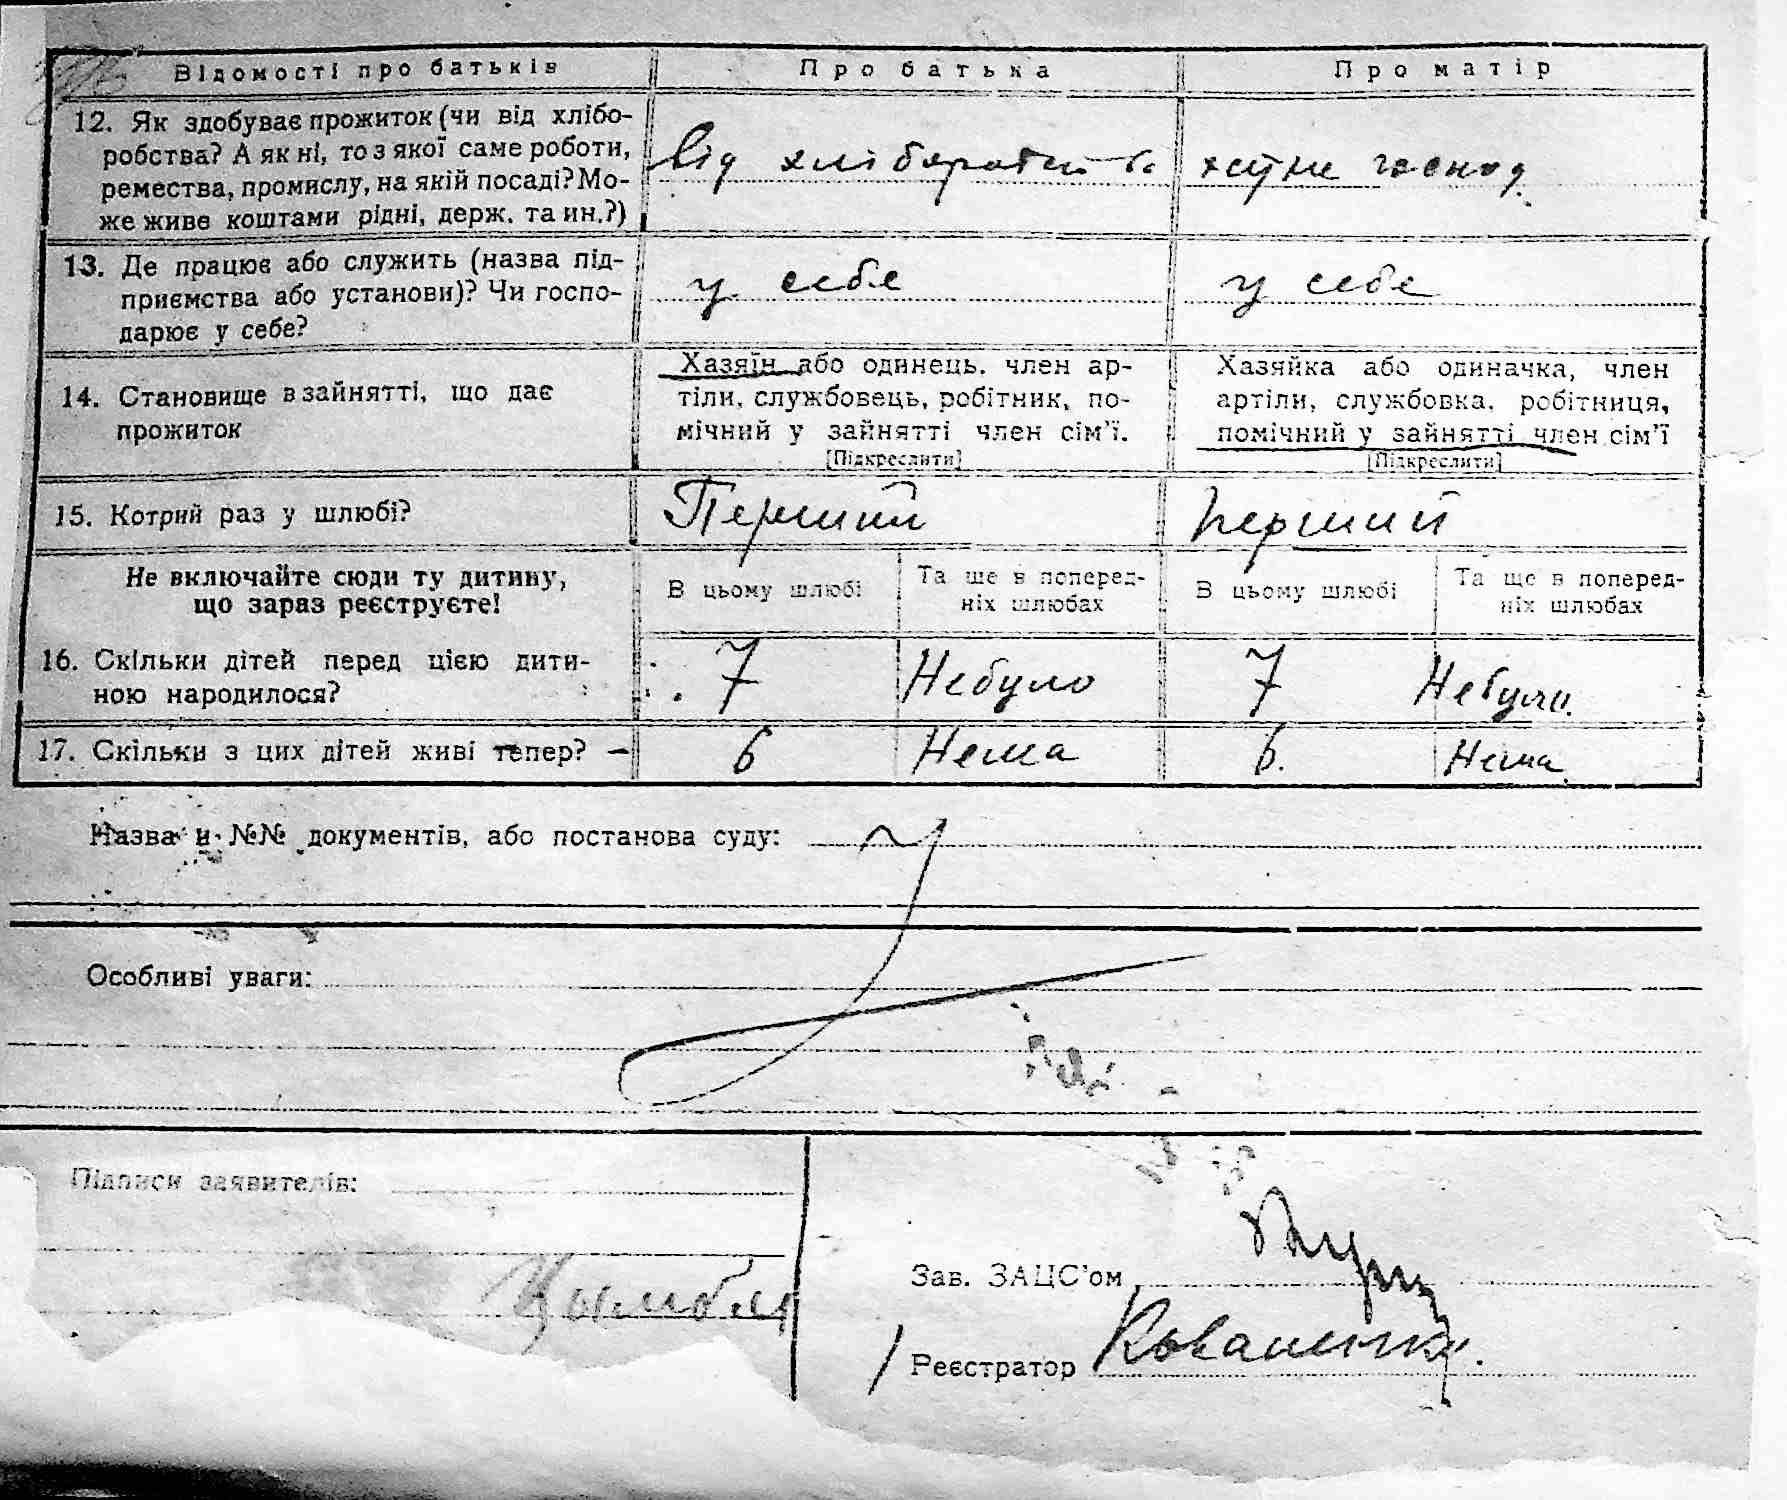 Відомості про батьків Про батька Про матір
12. Як здобуває прожиток (чи від хлібо-
робства? А як ні, то з якої саме роботи,
ремества, промислу, на якій посаді? Мо-
же живе коштами рідні, держ. та ин.?)
від хліборобства
хатне господ.
13. Де працює або служить (назва під-
приємства або установи)? Чи госпо-
дарює у себе?
у себе
у себе
14. Становище в зайнятті, що дає
прожиток
Хазяїн або одинець, член ар-
тіли, службовець, робітник, по-
мічний у зайнятті член сім'ї.
[Підкреслити]
Хазяйка або одиначка, член
артіли, службовка, робітниця,
помічний у зайнятті член сім'ї
[Підкреслити]
15. Котрий раз у шлюбі?
Перший
перший
Не включайте сюди ту дитину,
що зараз реєструєте!
В цьому шлюбі
Та ще в поперед-
ніх шлюбах
В цьому шлюбі
Та ще в поперед-
ніх шлюбах
16. Скільки дітей перед цією дити-
ною народилося?
7 Небуло 7 Небуло.
17. Скільки з цих дітей живі тепер? – 6 Нема 6. Нема.
Назва й №№ документів, або постанова суду:
Особливі уваги:
Підписи заявителів:
Зав. ЗАЦС'ом
Реєстратор Коваленко.